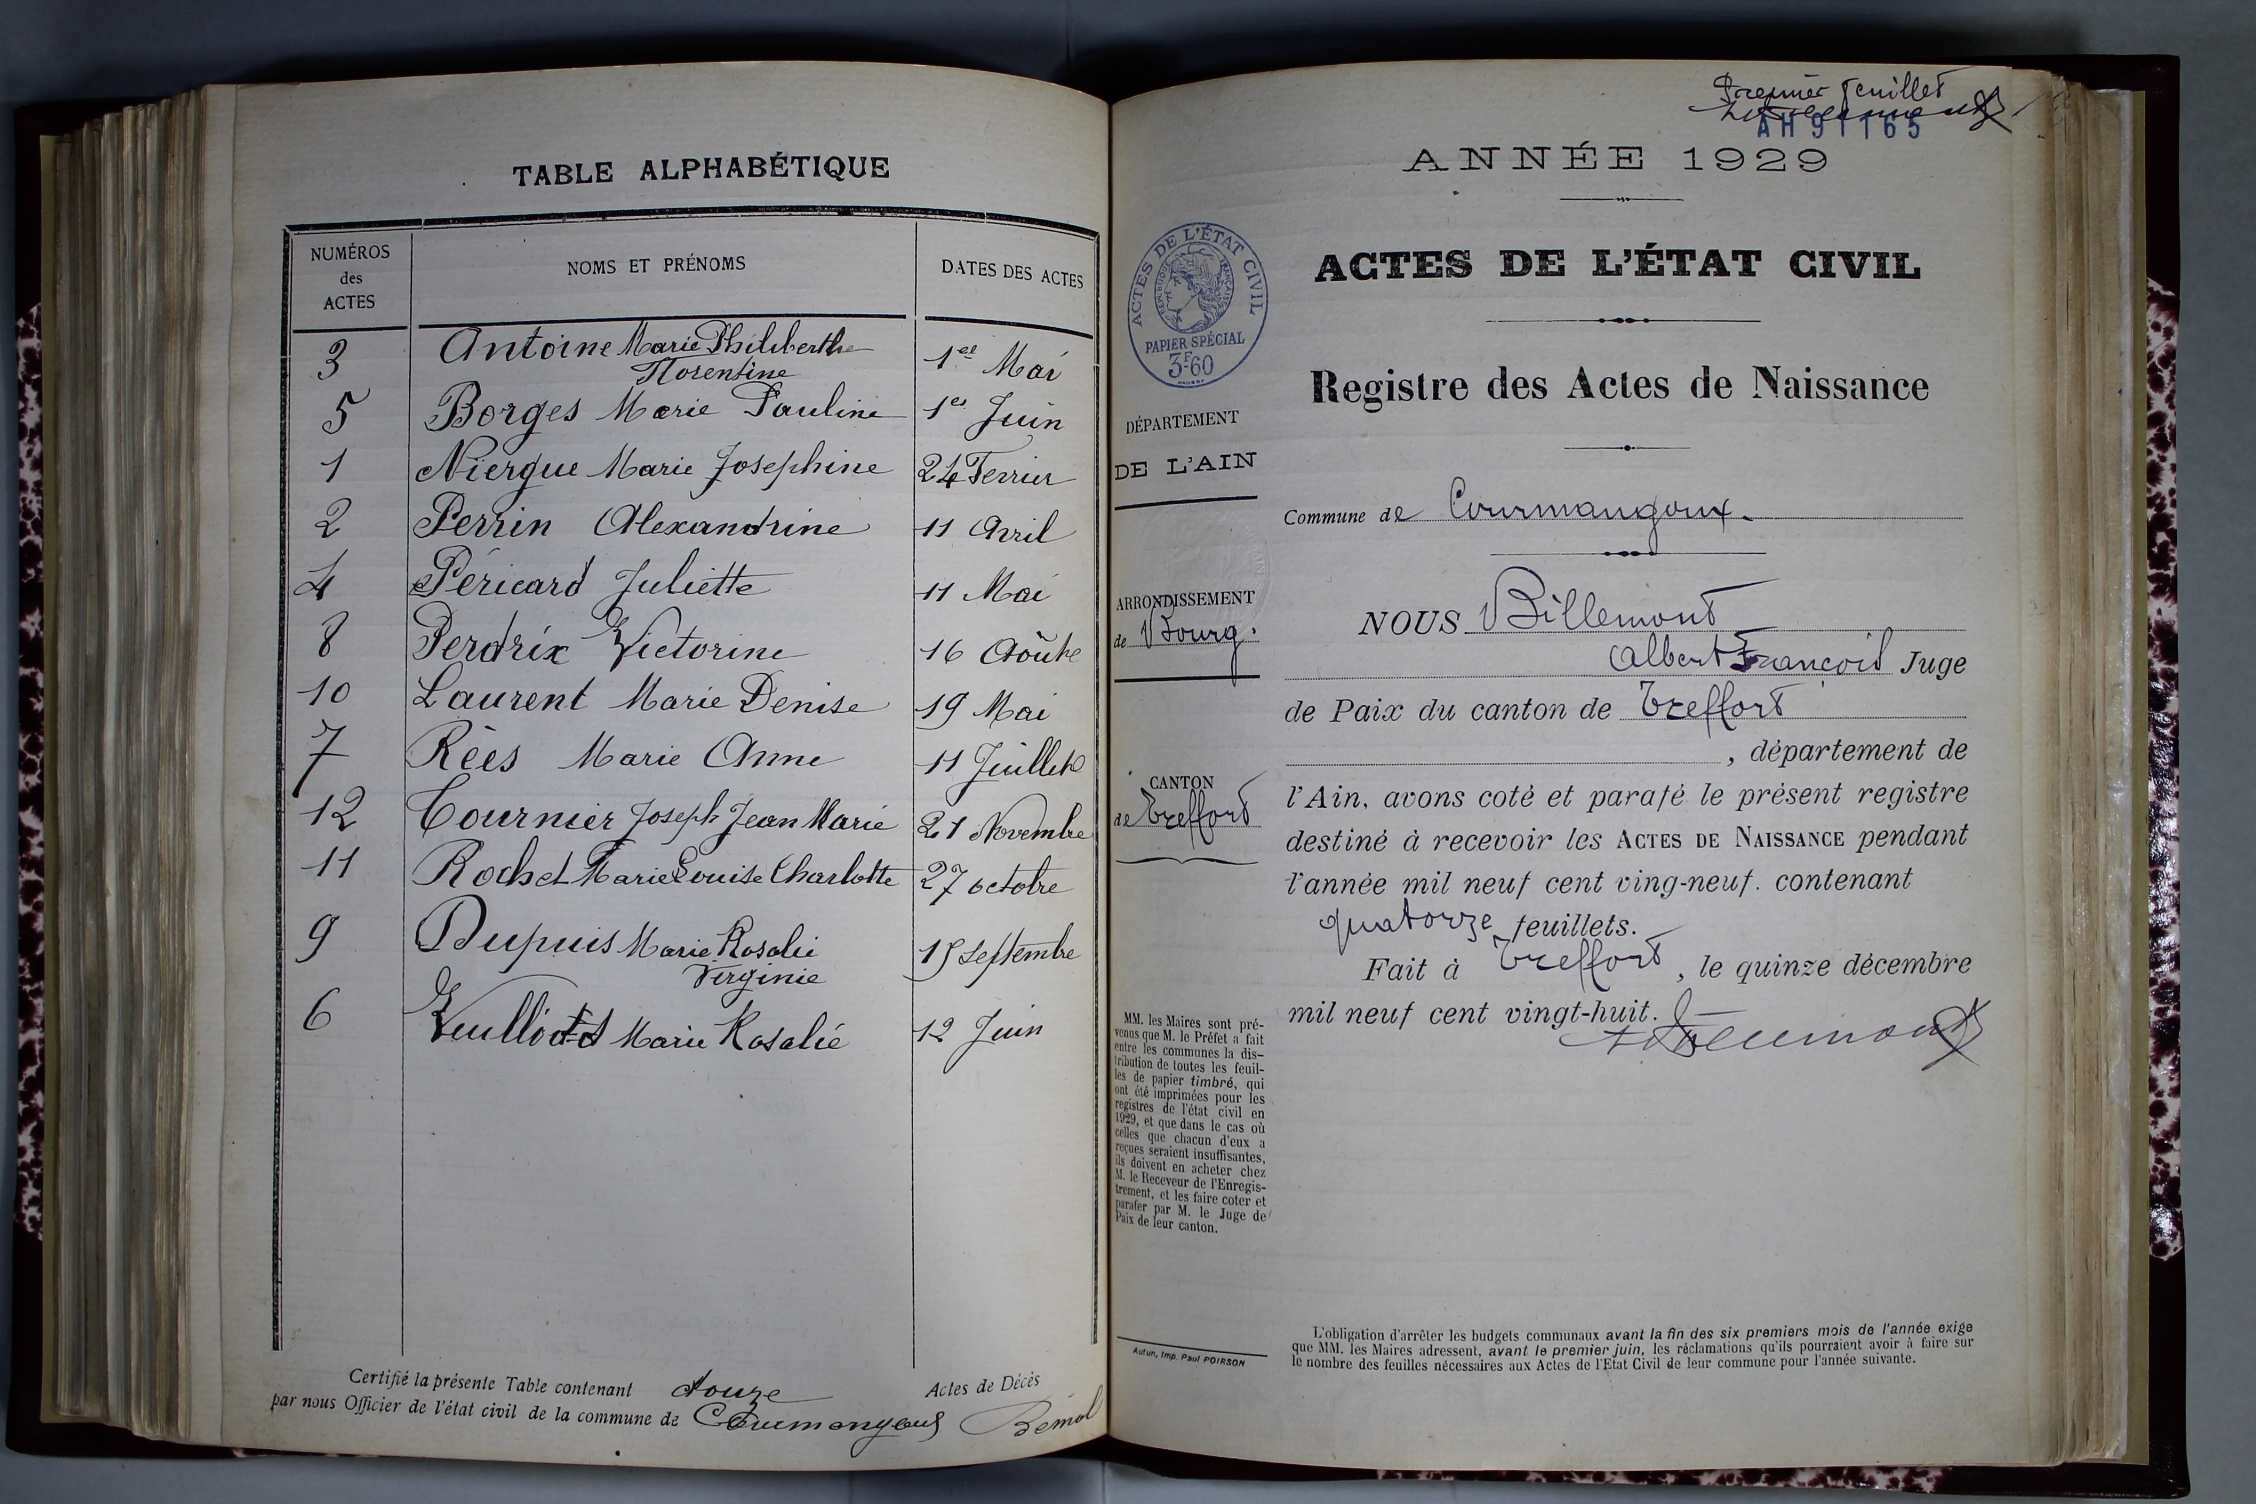 TABLE ALPHABÉTIQUE
NUMÉROS
des
ACTES
NOMS ET PRÉNOMS
DATES DES ACTES
3 Antoine Marie Philiberthe 1er Mai
Florentine
5 Borges Marie Pauline 1er Juin
1 Niergue Marie Josephine 24 Fevrier
2 Perrin Alexandrine 11 Avril
4 Péricard Juliette 11 Mai
8 Perdrix Victorine 16 Août
10 Laurent Marie Denise 19 Mai
7 Rèes Marie Anne 11 Juillet
12 Tournier Joseph Jean Marie 21 Novembre
11 Rochet Marie Louise Charlotte 27 octobre
9 Dupuis Marie Rosalie 15 Septembre
Virginie
6 Marie Rosalie 12 Juin
Certifié la présente Table contenant douze Actes de Décès
par nous Officier de l'état civil de la commune de Courmangoux
Premier feuillet
AH91165
ANNÉE 1929
ACTES DE L'ÉTAT CIVIL
RÉPUBLIQUE FRANÇAISE
PAPIER SPÉCIAL
3F60
ACTES DE L'ÉTAT CIVIL
Registre des Actes de Naissance
DÉPARTEMENT
DE L'AIN
Commune de Courmangoux.
ARRONDISSEMENT
de Bourg.
CANTON
de Treffort
NOUS Billemont
Albert François Juge
de Paix du canton de Treffort
, département de
l'Ain, avons coté et parafé le présent registre
destiné à recevoir les ACTES DE NAISSANCE pendant
l'année mil neuf cent ving-neuf. contenant
quatorze feuillets.
Fait à Treffort, le quinze décembre
mil neuf cent vingt-huit.
MM. les Maires sont pré-
venus que M. le Préfet a fait
entre les communes la dis-
tribution de toutes les feuil-
les de papier timbré, qui
ont été imprimées pour les
registres de l'état civil en
1929, et que dans le cas où
celles que chacun d'eux a
reçues seraient insuffisantes,
ils doivent en acheter chez
M. le Receveur de l'Enregis-
trement, et les faire coter et
parafer par M. le Juge de
Paix de leur canton.
Autun, Imp. Paul POIRSON
L'obligation d'arrêter les budgets communaux avant la fin des six premiers mois de l'année exige
que MM. les Maires adressent, avant le premier juin, les réclamations qu'ils pourraient avoir à faire sur
le nombre des feuilles nécessaires aux Actes de l'Etat Civil de leur commune pour l'année suivante.